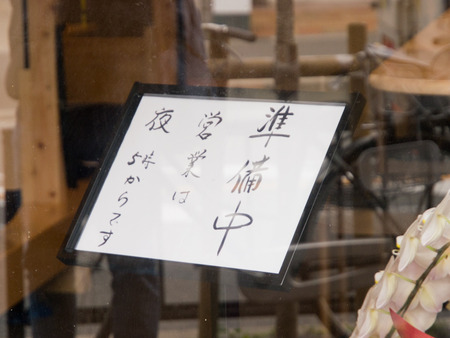 準備中
営業は
夜
5時からです